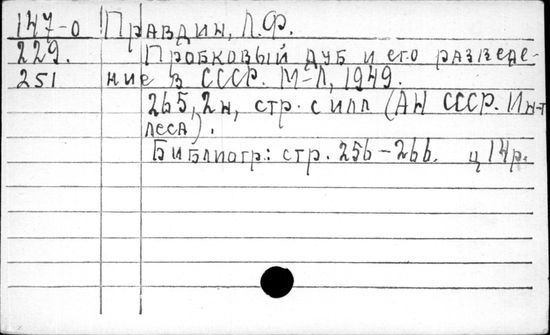 147-0 Правдин, Л.Ф.
229. Пробковый дуб и его разведе-
251 ние в СССР. М-Л, 1949.
265, 2н, стр. с илл (АН СССР. Ин-т
леса).
Библиогр.: стр. 256-266. ц 14р.